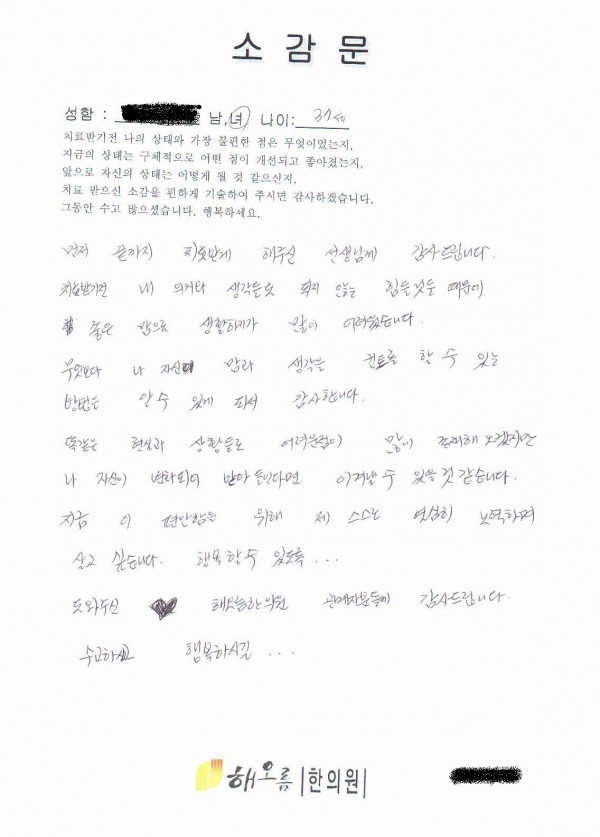 소감문
성함 : 남,녀 나이: 31세
치료받기전 나의 상태와 가장 불편한 점은 무엇이었는지,
지금의 상태는 구체적으로 어떤 점이 개선되고 좋아졌는지,
앞으로 자신의 상태는 어떻게 될 것 같으신지,
치료 받으신 소감을 편하게 기술하여 주시면 감사하겠습니다.
그동안 수고 많으셨습니다. 행복하세요.
먼저 끝까지 치료받게 해주신 선생님께 감사드립니다.
치료받기전 내 의지와 생각들로 되지 않는 힘든것들 때문에
좋은 맘으로 생활하기가 많이 어려웠습니다.
무엇보다 나 자신의 맘과 생각을 컨트롤 할 수 있는
방법을 알 수 있게 되서 감사합니다.
똑같은 현실과 상황들로 어려운점이 많이 존재해 오겠지만
나 자신이 변화되어 받아 들인다면 이겨낼 수 있을것 같습니다.
지금 이 편안함을 위해 제 스스로 열심히 노력하며
살고 싶습니다. 행복할 수 있도록...
도와주신 해오름한의원 관계자분들께 감사드립니다.
수고하시고 행복하시길...
해오름 |한의원|